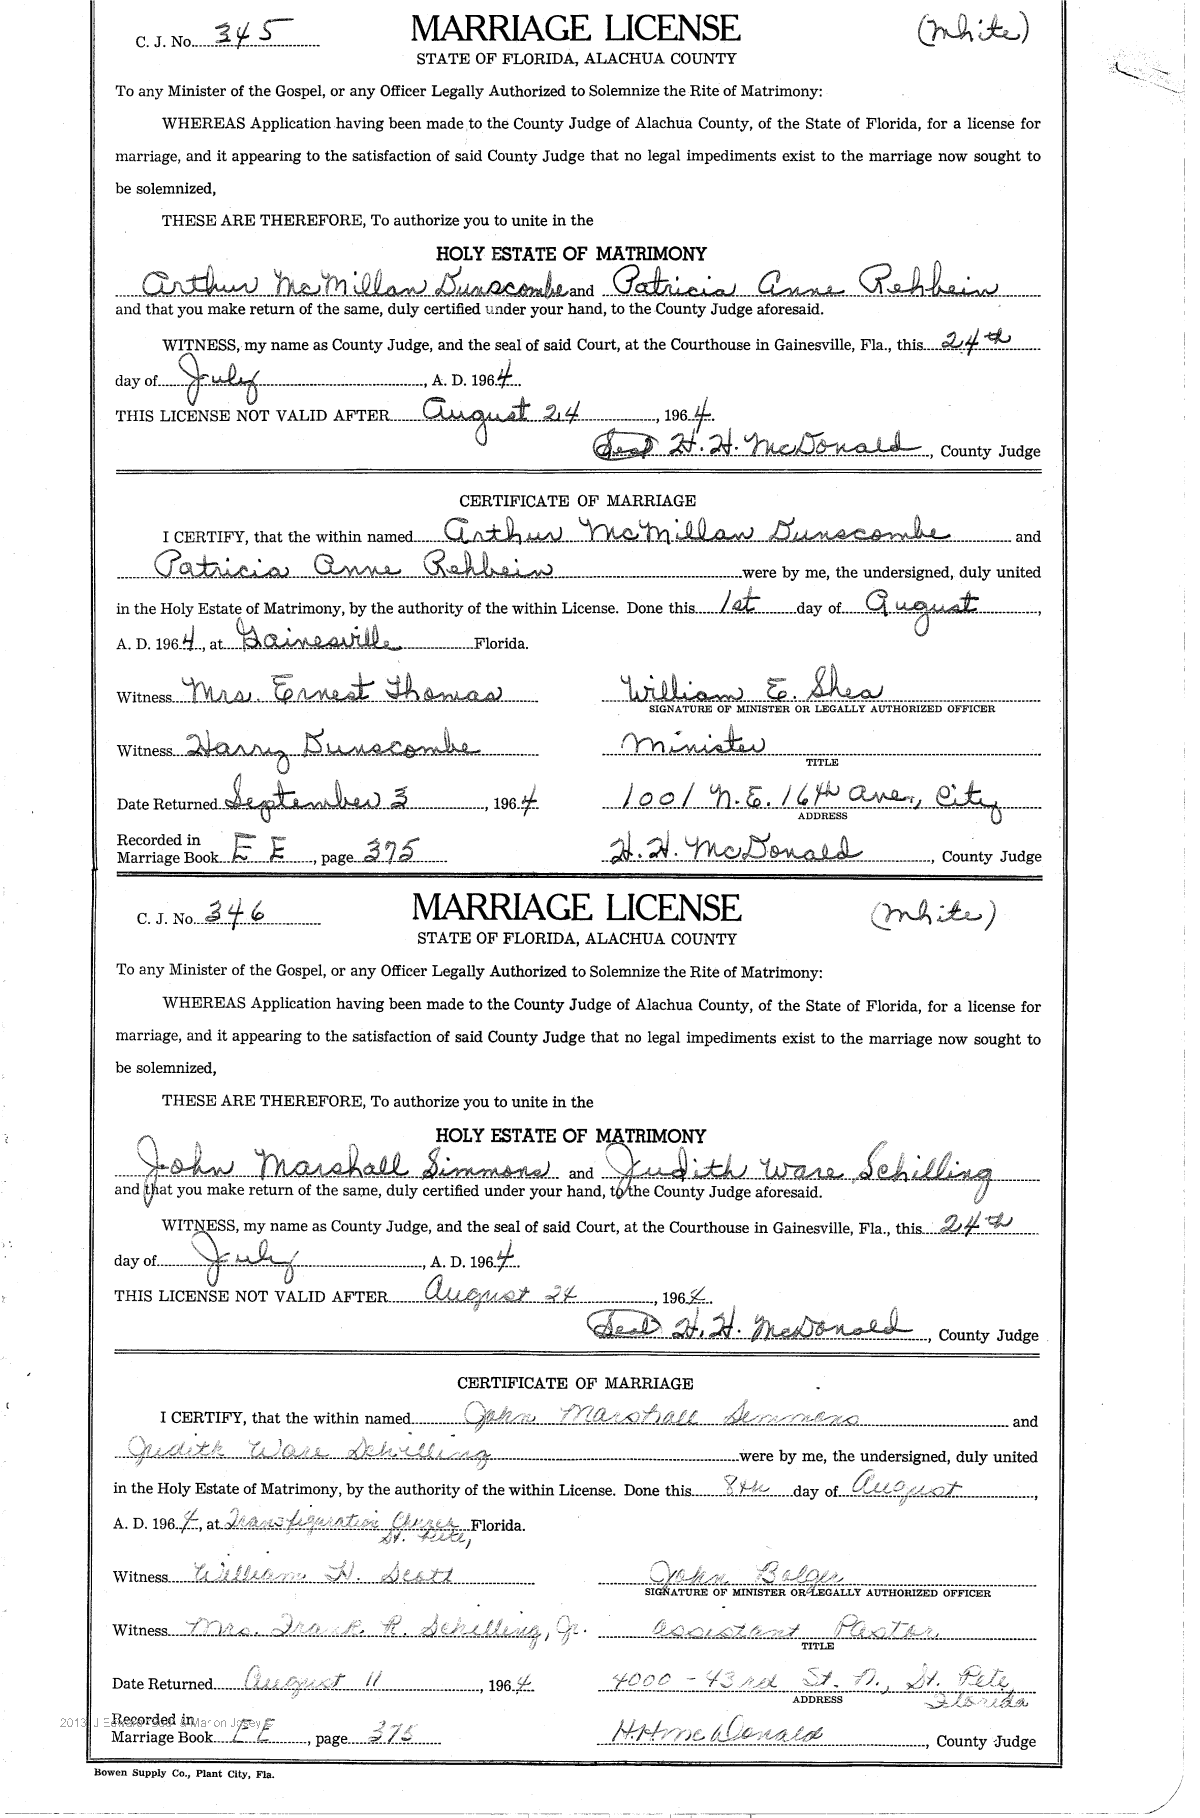 C. J. No. 345 MARRIAGE LICENSE (White)
STATE OF FLORIDA, ALACHUA COUNTY
To any Minister of the Gospel, or any Officer Legally Authorized to Solemnize the Rite of Matrimony:
WHEREAS Application having been made to the County Judge of Alachua County, of the State of Florida, for a license for
marriage, and it appearing to the satisfaction of said County Judge that no legal impediments exist to the marriage now sought to
be solemnized,
THESE ARE THEREFORE, To authorize you to unite in the
HOLY ESTATE OF MATRIMONY
Arthur McMillan Dunscombe and Patricia Anne Rehbein
and that you make return of the same, duly certified under your hand, to the County Judge aforesaid.
WITNESS, my name as County Judge, and the seal of said Court, at the Courthouse in Gainesville, Fla., this 24th
day of July, A. D. 1964.
THIS LICENSE NOT VALID AFTER August 24, 1964.
(Seal) H. H. McDonald, County Judge
CERTIFICATE OF MARRIAGE
I CERTIFY, that the within named Arthur McMillan Dunscombe and
Patricia Anne Rehbein were by me, the undersigned, duly united
in the Holy Estate of Matrimony, by the authority of the within License. Done this 1st day of August,
A. D. 1964, at Gainesville Florida.
Witness Mrs. Ernest Thomas William E. Shea
SIGNATURE OF MINISTER OR LEGALLY AUTHORIZED OFFICER
Witness Harry Dunscombe Minister
TITLE
Date Returned September 3, 1964 1001 N.E. 16th Ave., City
ADDRESS
Recorded in
Marriage Book EE, page 375 H. H. McDonald, County Judge
C. J. No. 346 MARRIAGE LICENSE (White)
STATE OF FLORIDA, ALACHUA COUNTY
To any Minister of the Gospel, or any Officer Legally Authorized to Solemnize the Rite of Matrimony:
WHEREAS Application having been made to the County Judge of Alachua County, of the State of Florida, for a license for
marriage, and it appearing to the satisfaction of said County Judge that no legal impediments exist to the marriage now sought to
be solemnized,
THESE ARE THEREFORE, To authorize you to unite in the
HOLY ESTATE OF MATRIMONY
John Marshall Simmons and Judith Ware Schilling
and that you make return of the same, duly certified under your hand, to the County Judge aforesaid.
WITNESS, my name as County Judge, and the seal of said Court, at the Courthouse in Gainesville, Fla., this 24th
day of July, A. D. 1964.
THIS LICENSE NOT VALID AFTER August 24, 1964.
(Seal) H. H. McDonald, County Judge
CERTIFICATE OF MARRIAGE
I CERTIFY, that the within named John Marshall Simmons and
Judith Ware Schilling were by me, the undersigned, duly united
in the Holy Estate of Matrimony, by the authority of the within License. Done this 8th day of August,
A. D. 1964, at Transfiguration Church Florida.
St. Pete,
Witness William H. Scott John Bolger
SIGNATURE OF MINISTER OR LEGALLY AUTHORIZED OFFICER
Witness Mrs. Frank R. Schilling, Jr. Assistant Pastor
TITLE
Date Returned August 11, 1964. 4000 - 43rd St. N., St. Pete,
ADDRESS Florida
Recorded in
Marriage Book EE, page 375 H. H. McDonald, County Judge
Bowen Supply Co., Plant City, Fla.